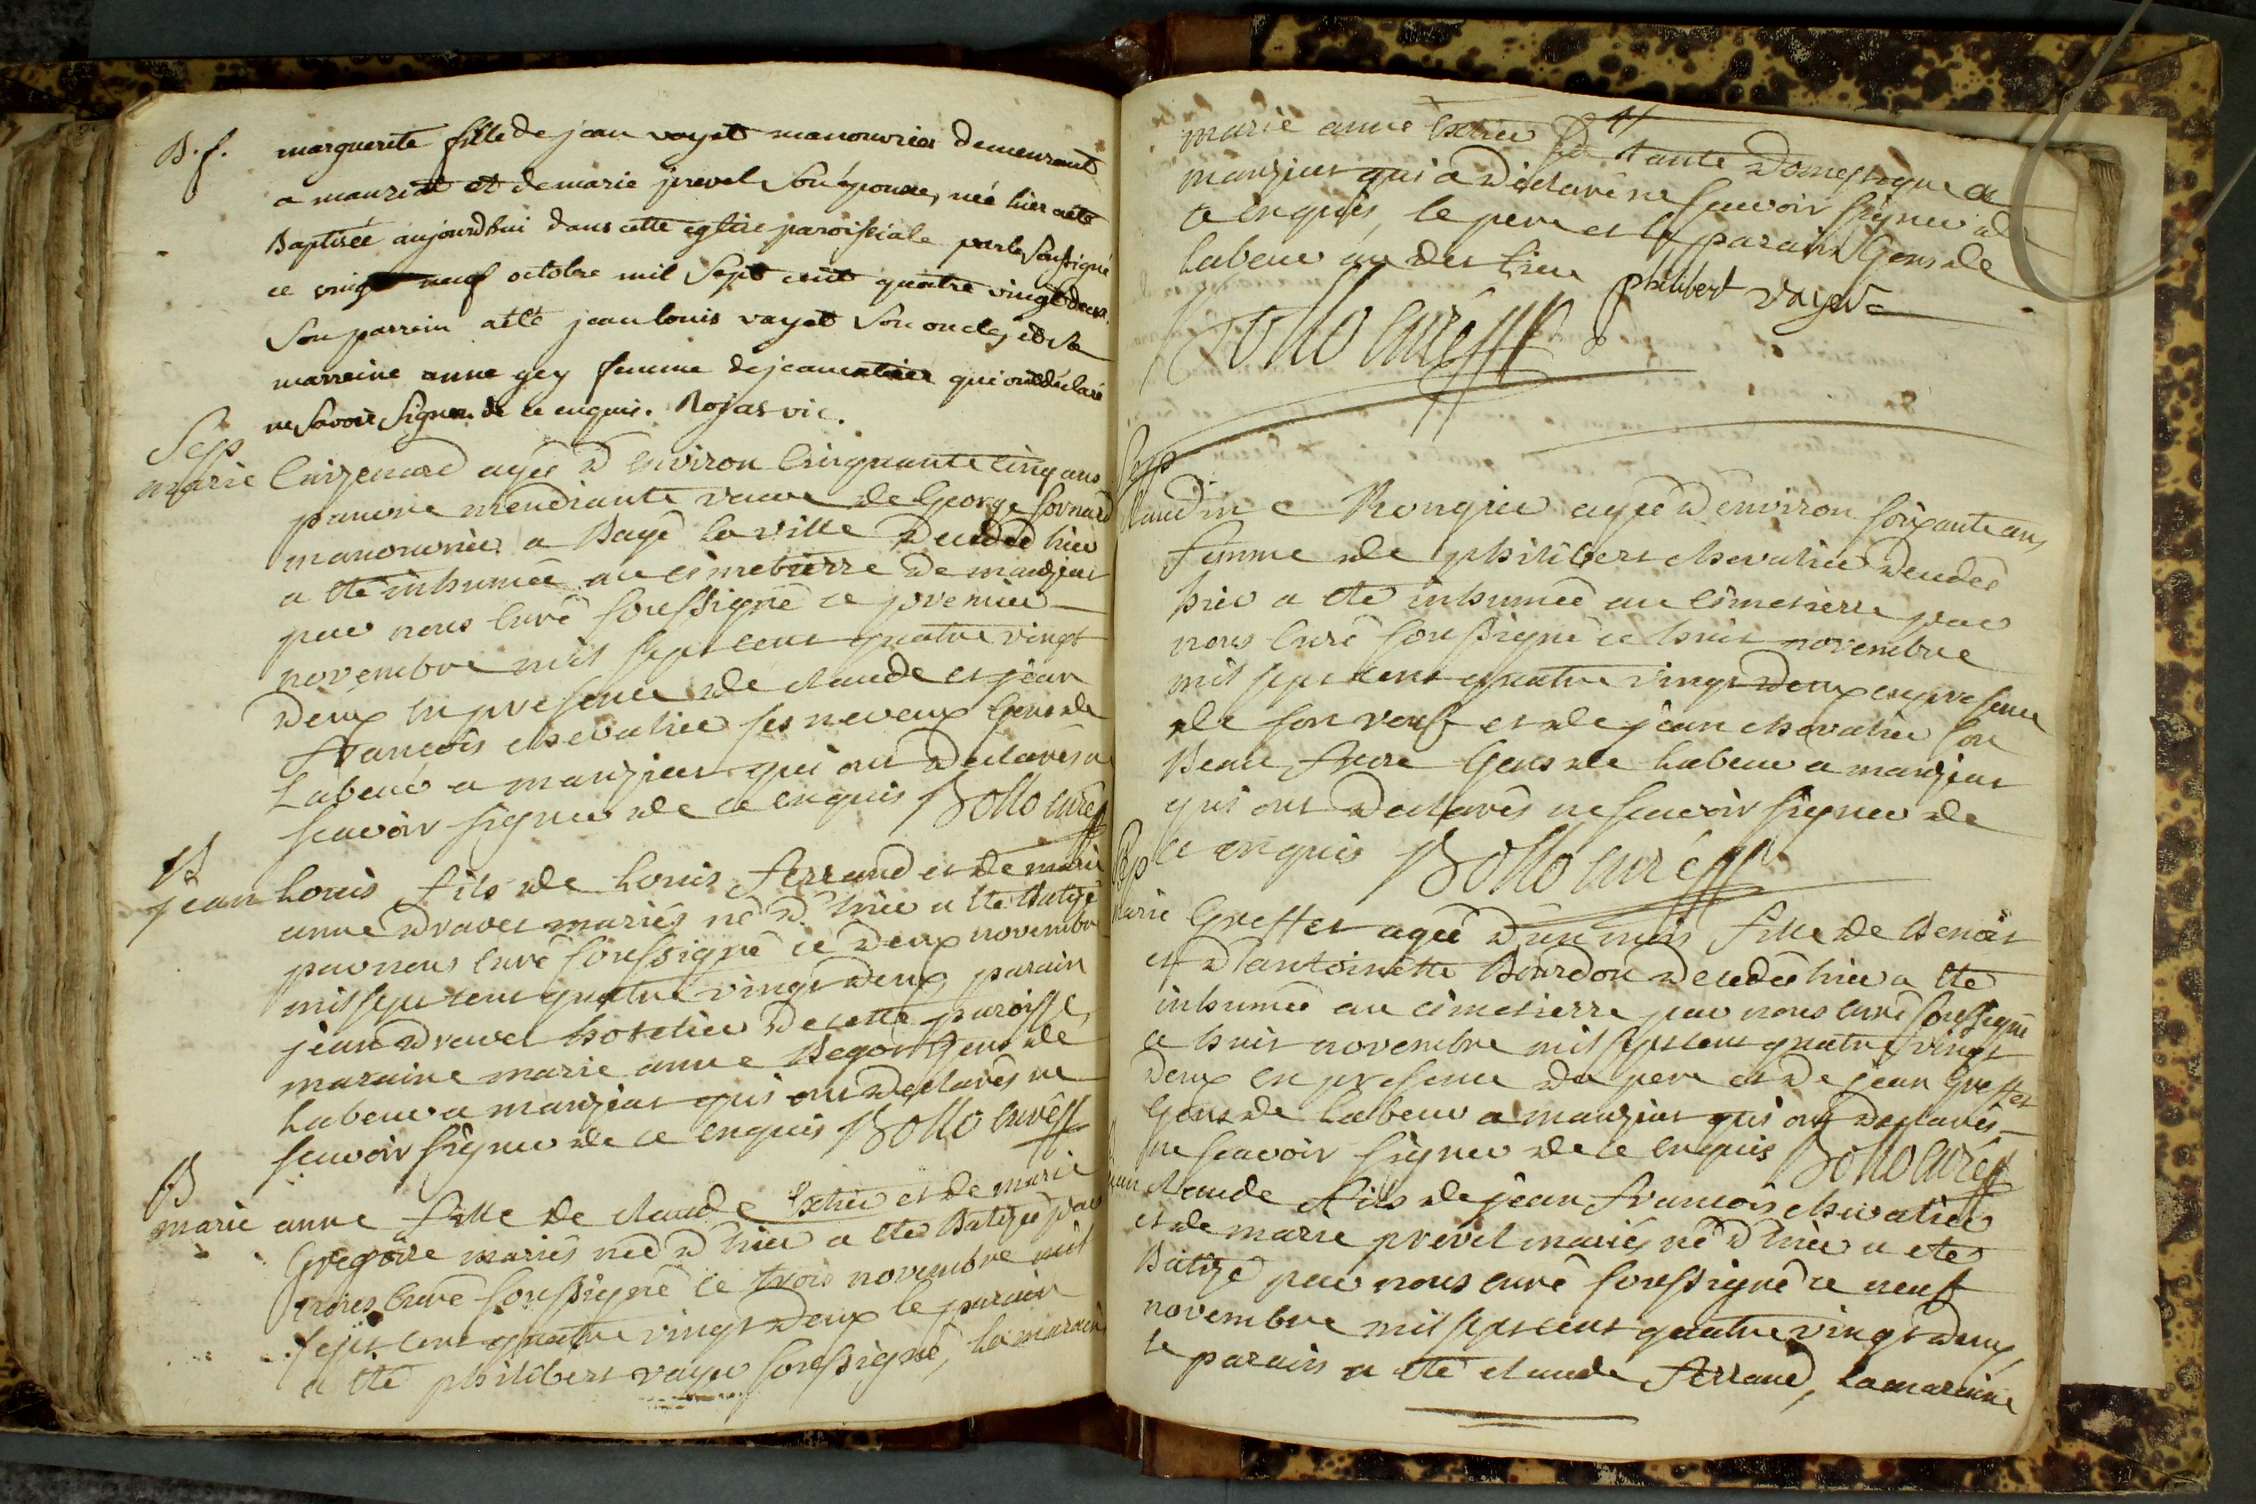 B. f. marguerite fille de jean voyet manouvrier demeurant
a manziat et de marie prevel son épouse, née hier a été
Baptisée aujourdhui dans cette eglise paroissiale par le soussigné
ce vingt neuf octobre mil Sept cent quatre vingt deux.
Son parrein a été jean louis voyet son oncle, et sa
marreine anne gey femme de jean qui ont déclaré
ne Savoir Signer de ce enquis. Rojas vic.
Sep
marie Cuizenard agée d'environ Cinquante Cinq ans
pauvre mendiante veuve de George
manouvrier a Bagé la ville decedée hier
a été inhumée au cimetierre de manziat
par nous Curé soussigné ce premier
novembre mil sept cent quatre vingt
Deux en presence de claude et jean
francois chevalier ses neveux Gens de
Labeur a manziat qui ont Declarés ne
scavoir signer de ce enquis Bollo curé
B
jean Louis fils de Louis ferrand et de marie
anne Dravet mariés né d'hier a été Batizé
par nous Curé soussigné ce Deux novembre
mil sept cent quatre vingt Deux, parain
jean Dravet hotelier de cette paroisse,
maraine marie anne Begon Gens de
Labeur a manziat qui ont Declarés ne
scavoir signer de ce enquis Bollo curé
B
marie anne fille de claude et de marie
Gregoire mariés née d'hier a été Batizée par
nous Curé soussigné ce trois novembre mil
sept cent quatre vingt Deux le parain
a été philibert voyer soussigné, la maraine
marie anne tante Domestique a
manziat qui a Declaré ne scavoir signer de
ce enquis, le pere et le parain Gens de
Labeur au dit lieu philibert voyer
Bollo curé
Sep
claudine Rongier agée d'environ soixante ans
femme de philibert chevalier Decedée
hier a été inhumée au cimetierre par
nous Curé soussigné ce huit novembre
mil sept cent quatre vingt Deux en presence
de son veuf et de jean chevalier son
Beau frere Gens de Labeur a manziat
qui ont Declarés ne scavoir signer de
ce enquis Bollo curé
Sep
marie Greffet agée d'un mois fille de Benoit
et d'antoinette Bourdon Decedée hier a été
inhumée au cimetierre par nous curé soussigné
ce huit novembre mil sept cent quatre vingt
Deux en presence du pere et de jean Greffet
Gens de Labeur a manziat qui ont Declarés
ne scavoir signer de ce enquis Bollo curé
jean claude fils de jean francois chevalier
et de marie prevel mariés né d'hier a eté
Batizé par nous curé soussigné ce neuf
novembre mil sept cent quatre vingt Deux
le parain a été claude ferrand, la maraine